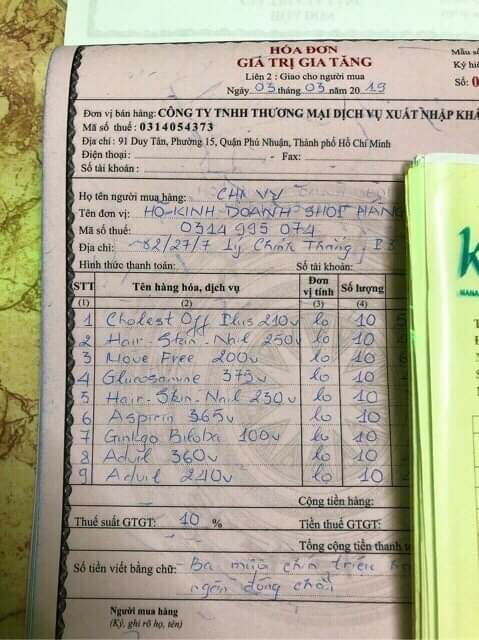 HÓA ĐƠN
GIÁ TRỊ GIA TĂNG
Liên 2 : Giao cho người mua
Ngày 03 tháng 03 năm 2019
Mẫu số
Ký hiệ
Số: 0
Đơn vị bán hàng: CÔNG TY TNHH THƯƠNG MẠI DỊCH VỤ XUẤT NHẬP KHẨ
Mã số thuế : 0314054373
Địa chỉ : 91 Duy Tân, Phường 15, Quận Phú Nhuận, Thành phố Hồ Chí Minh
Điện thoại: - Fax:
Số tài khoản:
Họ tên người mua hàng: CHỊ VY
Tên đơn vị: HỘ KINH DOANH SHOP HÀNG
Mã số thuế: 0314995074
Địa chỉ: 82/27/7 Lý Chính Thắng, P8
Hình thức thanh toán: Số tài khoản:
STT Tên hàng hóa, dịch vụ Đơn vị tính Số lượng
(1) (2) (3) (4)
1 Cholest Off Plus 210v lo 10
2 Hair-Skin-Nail 250v lo 10
3 Move Free 200v lo 10
4 Glucosamine 375v lo 10
5 Hair-Skin-Nail 250v lo 10
6 Aspirin 365v lo 10
7 Ginkgo Biloba 100v lo 10
8 Advil 360v lo 10
9 Advil 240v lo 10
Cộng tiền hàng:
Thuế suất GTGT: 10 % Tiền thuế GTGT:
Tổng cộng tiền thanh t
Số tiền viết bằng chữ: Ba mươi chín triệu
ngàn đồng chẵn
Người mua hàng
(Ký, ghi rõ họ, tên)